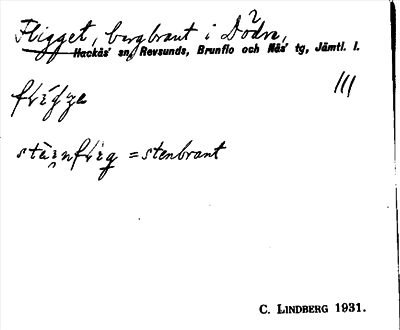 Fligget, bergbrant i Dödre,
Hackås' sn, Revsunds, Brunflo och Näs' tg, Jämtl. l.
III
= stenbrant
C. LINDBERG 1931.